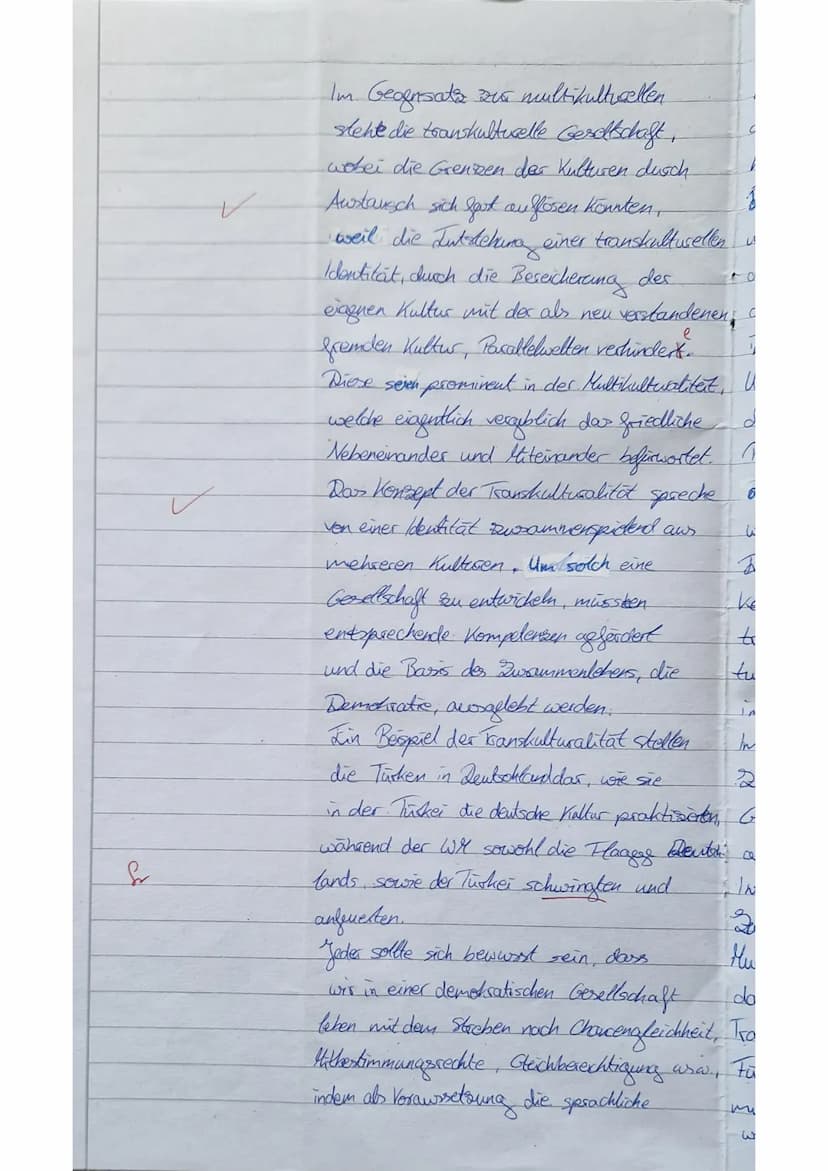 Im Gegensatz zur multikulturellen
steht die transkulturelle Gesellschaft,
wobei die Grenzen der Kulturen durch
Austausch sich fast auflösen könnten,
weil die Entstehung einer transkulturellen
Identität, durch die Bereicherung der
eigenen Kultur mit der als neu verstandenen
fremden Kultur, Parallelwelten verhindere.
Diese seien prominent in der Multikulturalität,
welche eigentlich vergeblich das friedliche
Nebeneinander und Miteinander befürwortet.
Das Konzept der Transkulturalität spreche
von einer Identität zusammenspielend aus
mehreren Kulturen. Um solch eine
Gesellschaft zu entwickeln, müssten
entsprechende Kompetenzen gefördert
und die Basis des Zusammenlebens, die
Demokratie, ausgelebt werden.
Ein Beispiel der Transkulturalität stellen
die Türken in Deutschland dar, wie sie
in der Türkei die deutsche Kultur praktizierten,
während der WM sowohl die Flagge Deutsch
Gr lands, sowie der Türkei schwingten und
anfeuerten.
Jeder sollte sich bewusst sein, dass
wir in einer demokratischen Gesellschaft
leben mit dem Streben nach Chancengleichheit,
Mitbestimmungsrechte, Gleichberechtigung usw.,
indem als Voraussetzung die sprachliche